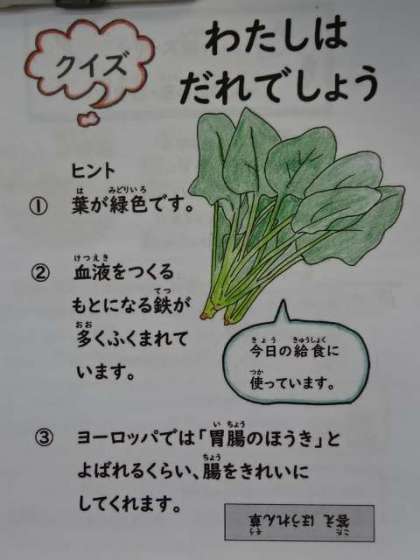 クイズ
わたしは
だれでしょう
ヒント
① 葉が緑色です。
② 血液をつくる
もとになる鉄が
多くふくまれて
います。
今日の給食に
使っています。
③ ヨーロッパでは「胃腸のほうき」と
よばれるくらい、腸をきれいに
してくれます。
答え ほうれん草